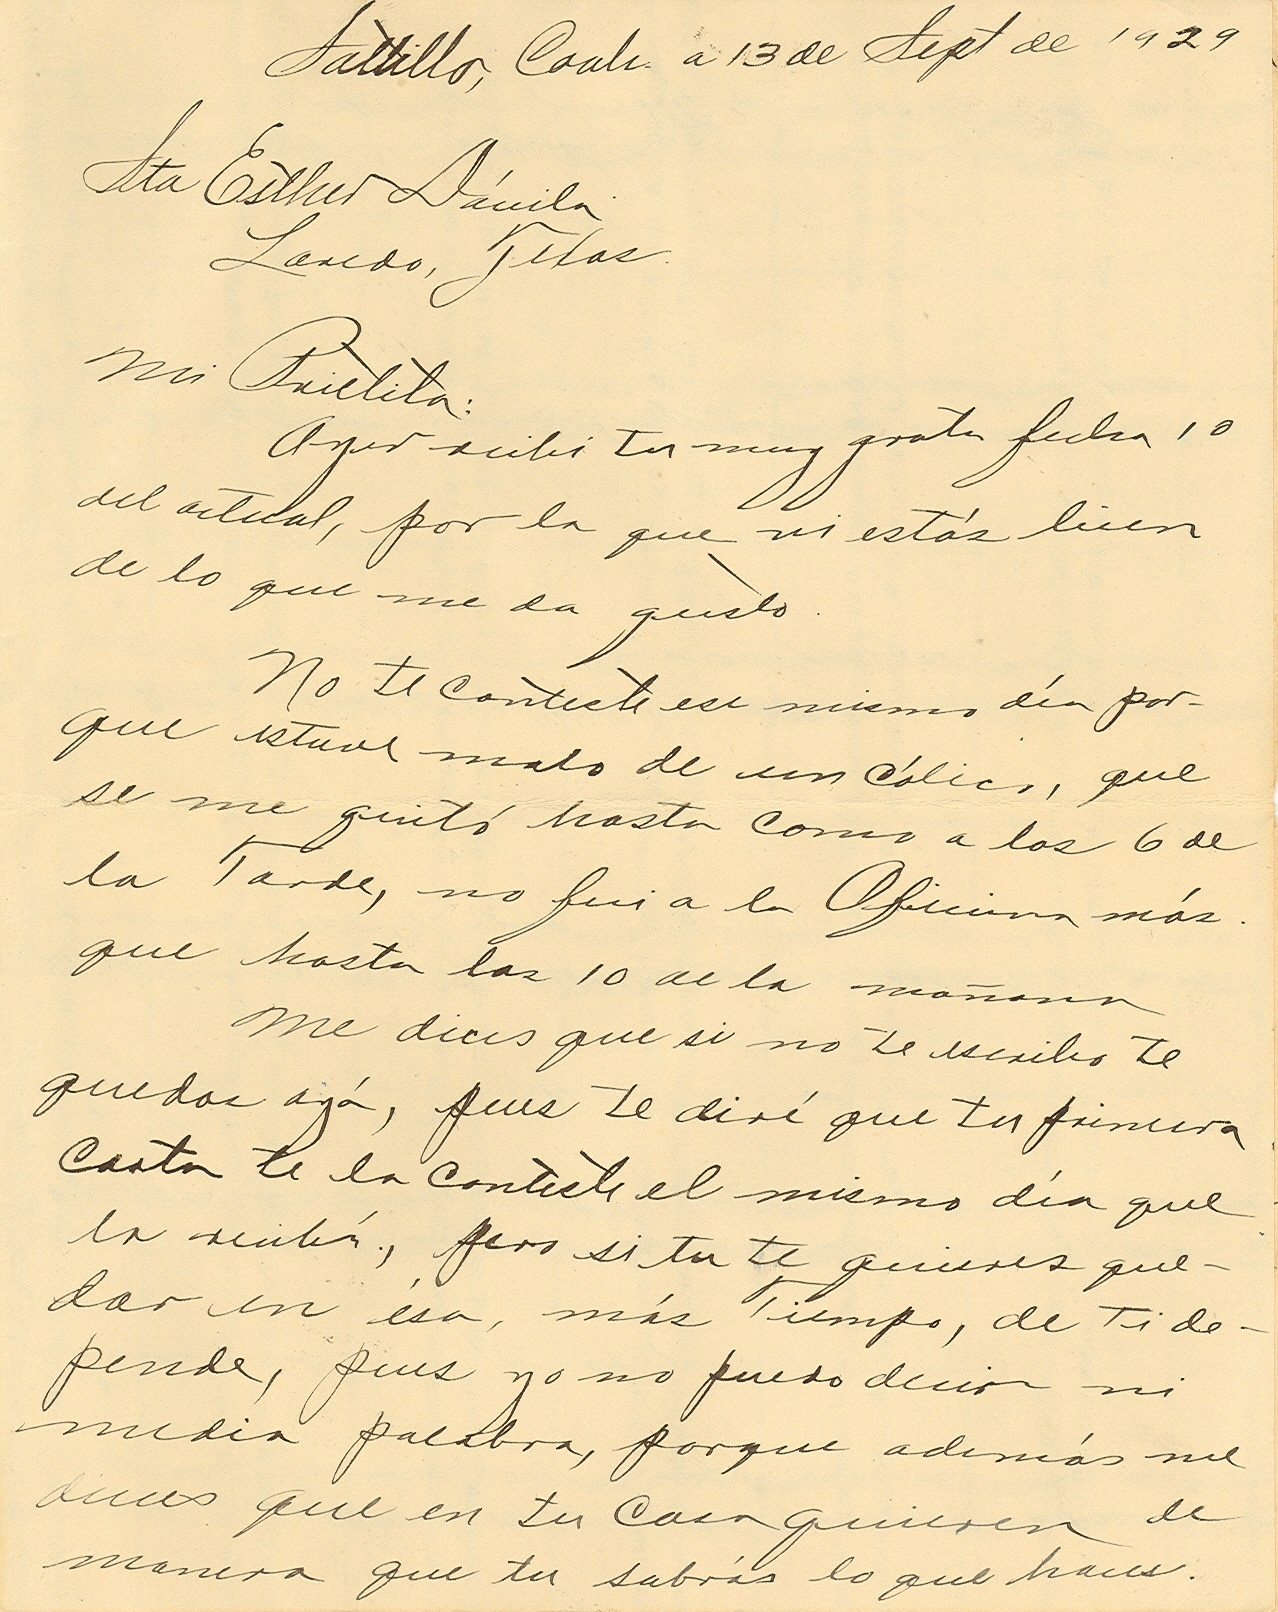 Saltillo, Coah. a 13 de Sept de 1929
Sta Esther Dávila
Laredo, Texas.
Mi Prietita:
Ayer recibí tu muy grata fecha 10
del actual, por la que vi estás bien
de lo que me da gusto.
No te contesté ese mismo día por-
que estuve malo de un cólico, que
se me quitó hasta como a las 6 de
la Tarde, no fui a la Oficina más.
que hasta las 10 de la mañana
Me dices que si no te escribo te
quedas ayá, pues te diré que tu primera
Carta te la contesté el mismo día que
la recibí, pero si tu te quieres que-
dar en ésa, más Tiempo, de Ti de-
pende, pues yo no puedo decir ni
media palabra, porque además me
dices que en tu Casa quieren de
manera que tu sabrás lo que haces.